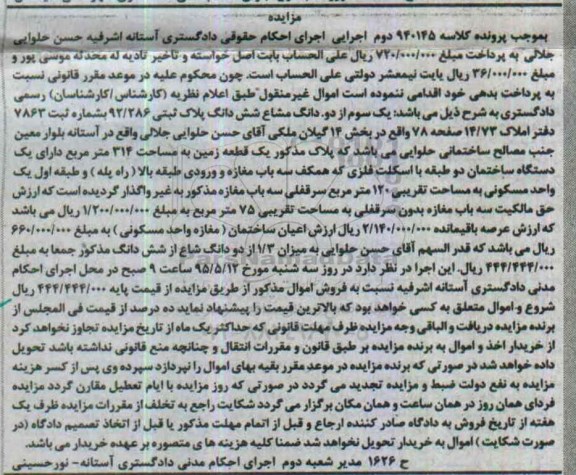 مزایده
بموجب پرونده کلاسه ۹۴۰۱۴۵ دوم اجرایی اجرای احکام حقوقی دادگستری آستانه اشرفیه حسن حلوایی
جلالی به پرداخت مبلغ ۷۲۰/۰۰۰/۰۰۰ ریال علی الحساب بابت اصل خواسته و تاخیر تادیه له محدثه موسی پور و
مبلغ ۳۶/۰۰۰/۰۰۰ ریال بابت نیمعشر دولتی علی الحساب است. چون محکوم علیه در موعد مقرر قانونی نسبت
به پرداخت بدهی خود اقدامی ننموده است اموال غیرمنقول طبق اعلام نظریه (کارشناس/کارشناسان) رسمی
دادگستری به شرح ذیل می‌باشد: یک سوم از دو دانگ مشاع شش دانگ پلاک ثبتی ۹۲/۲۸۶ بشماره ثبت ۷۸۶۳
دفتر املاک ۱۴/۷۳ صفحه ۷۸ واقع در بخش ۱۴ گیلان ملکی آقای حسن حلوایی جلالی واقع در آستانه بلوار معین
جنب مصالح ساختمانی حلوایی می باشد که پلاک مذکور یک قطعه زمین به مساحت ۳۱۴ متر مربع دارای یک
دستگاه ساختمان دو طبقه با اسکلت فلزی که همکف سه باب مغازه و ورودی طبقه بالا (راه پله) و طبقه اول یک
واحد مسکونی به مساحت تقریبی ۱۲۰ متر مربع سرقفلی سه باب مغازه مذکور به غیر واگذار گردیده است که ارزش
حق مالکیت سه باب مغازه بدون سرقفلی به مساحت تقریبی ۷۵ متر مربع به مبلغ ۱/۲۰۰/۰۰۰/۰۰۰ ریال می باشد
که ارزش عرصه باقیمانده ۲/۱۴۰/۰۰۰/۰۰۰ ریال ارزش اعیان ساختمان (مغازه و واحد مسکونی) به مبلغ ۶۶۰/۰۰۰/۰۰۰
ریال می باشد که قدر السهم آقای حسن حلوایی به میزان ۱/۳ از دو دانگ مشاع از شش دانگ مذکور جمعا به مبلغ
۴۴۴/۴۴۴/۰۰۰ ریال. این اجرا در نظر دارد در روز سه شنبه مورخ ۹۵/۵/۱۲ ساعت ۹ صبح در محل اجرای احکام
مدنی دادگستری آستانه اشرفیه نسبت به فروش اموال مذکور از طریق مزایده از قیمت پایه ۴۴۴/۴۴۴/۰۰۰ ریال
شروع و اموال متعلق به کسی خواهد بود که بالاترین قیمت را پیشنهاد نماید ده درصد از قیمت فی المجلس از
برنده مزایده دریافت و الباقی وجه مزایده ظرف مهلت قانونی که حداکثر یک ماه از تاریخ مزایده تجاوز نخواهد کرد
از خریدار اخذ و اموال به برنده مزایده بر طبق قانون و مقررات انتقال و چنانچه منع قانونی نداشته باشد تحویل
داده خواهد شد در صورتی که برنده مزایده در موعد مقرر بقیه بهای اموال را نپردازد سپرده وی پس از کسر هزینه
مزایده به نفع دولت ضبط و مزایده تجدید می گردد در صورتی که روز مزایده با ایام تعطیل مقارن گردد مزایده
فردای همان روز در همان ساعت و همان مکان برگزار می گردد شکایت راجع به تخلف از مقررات مزایده ظرف یک
هفته از تاریخ فروش به دادگاه صادر کننده ارجاع و قبل از اتمام مهلت مذکور یا قبل از اتخاذ تصمیم دادگاه (در
صورت شکایت) اموال به خریدار تحویل نخواهد شد ضمنا کلیه هزینه های متصوره بر عهده خریدار می باشد.
ح ۱۶۲۶ مدیر شعبه دوم اجرای احکام مدنی دادگستری آستانه - نورحسینی